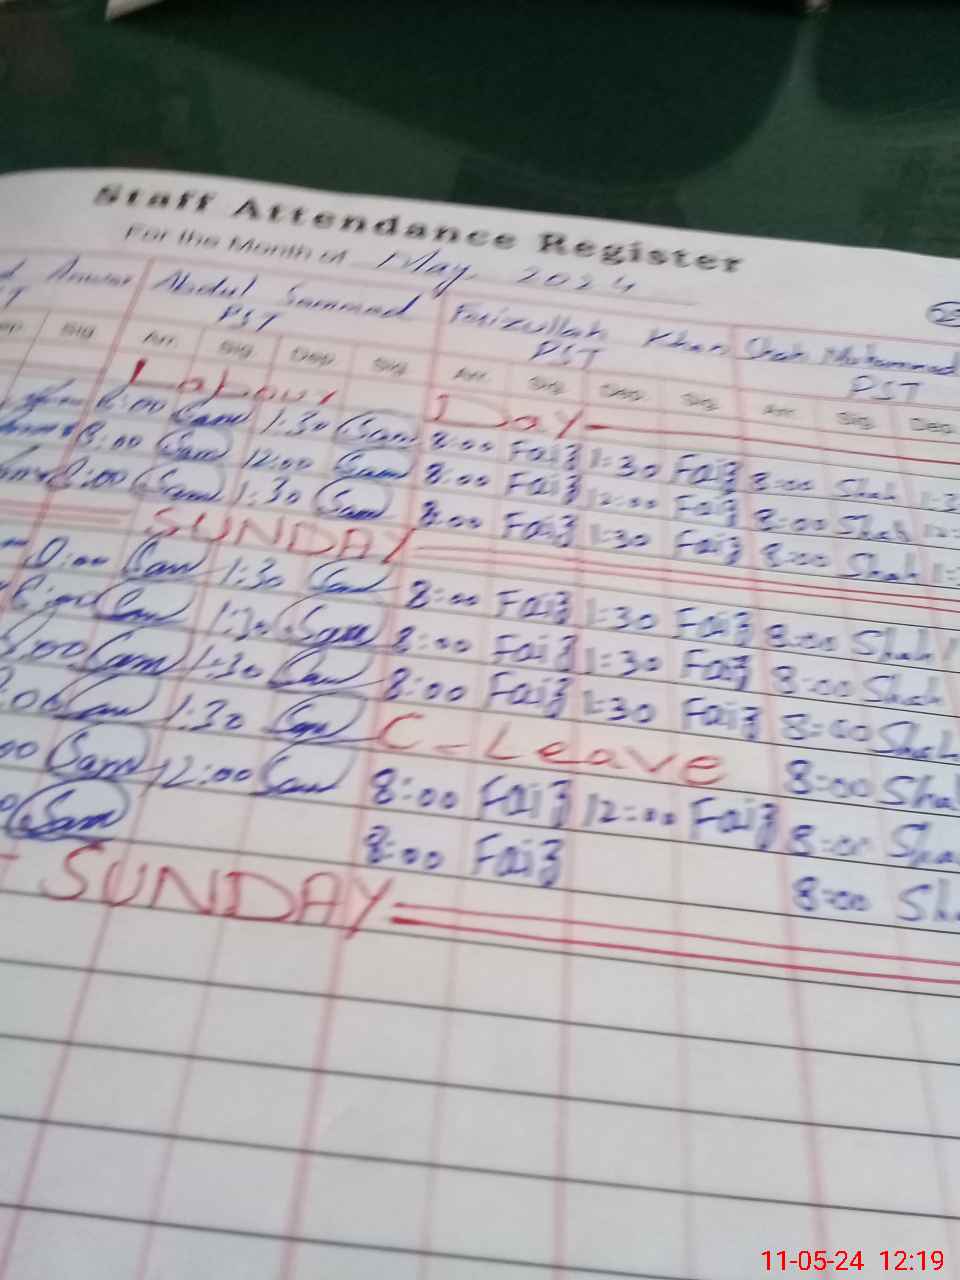 Staff Attendance Register
For the Month of May, 2024
Anwar Abdul Sammad Faizullah Khan Shah Muhammad
PST PST PST
Sig Arr. Sig Dep Sig Arr. Sig Dep. Sig Arr. Sig Dep.
Labour Day
8:00 Sam 1:30 Sam 8:00 Faiz 1:30 Faiz 8:00 Shah
8:00 Sam 12:00 Sam 8:00 Faiz 12:00 Faiz 8:00 Shah
8:00 Sam 1:30 Sam 8:00 Faiz 1:30 Faiz 8:00 Shah
SUNDAY
8:00 Sam 1:30 Sam 8:00 Faiz 1:30 Faiz 8:00 Shah
Sam 1:30 Sam 8:00 Faiz 1:30 Faiz 8:00 Shah
8:00 Sam 1:30 Sam 8:00 Faiz 1:30 Faiz 8:00 Shah
Sam 1:30 Sam C-Leave 8:00 Sha
00 Sam 12:00 Sam 8:00 Faiz 12:00 Faiz 8:00 Sha
Sam 8:00 Faiz 8:00 Sh
SUNDAY
11-05-24 12:19